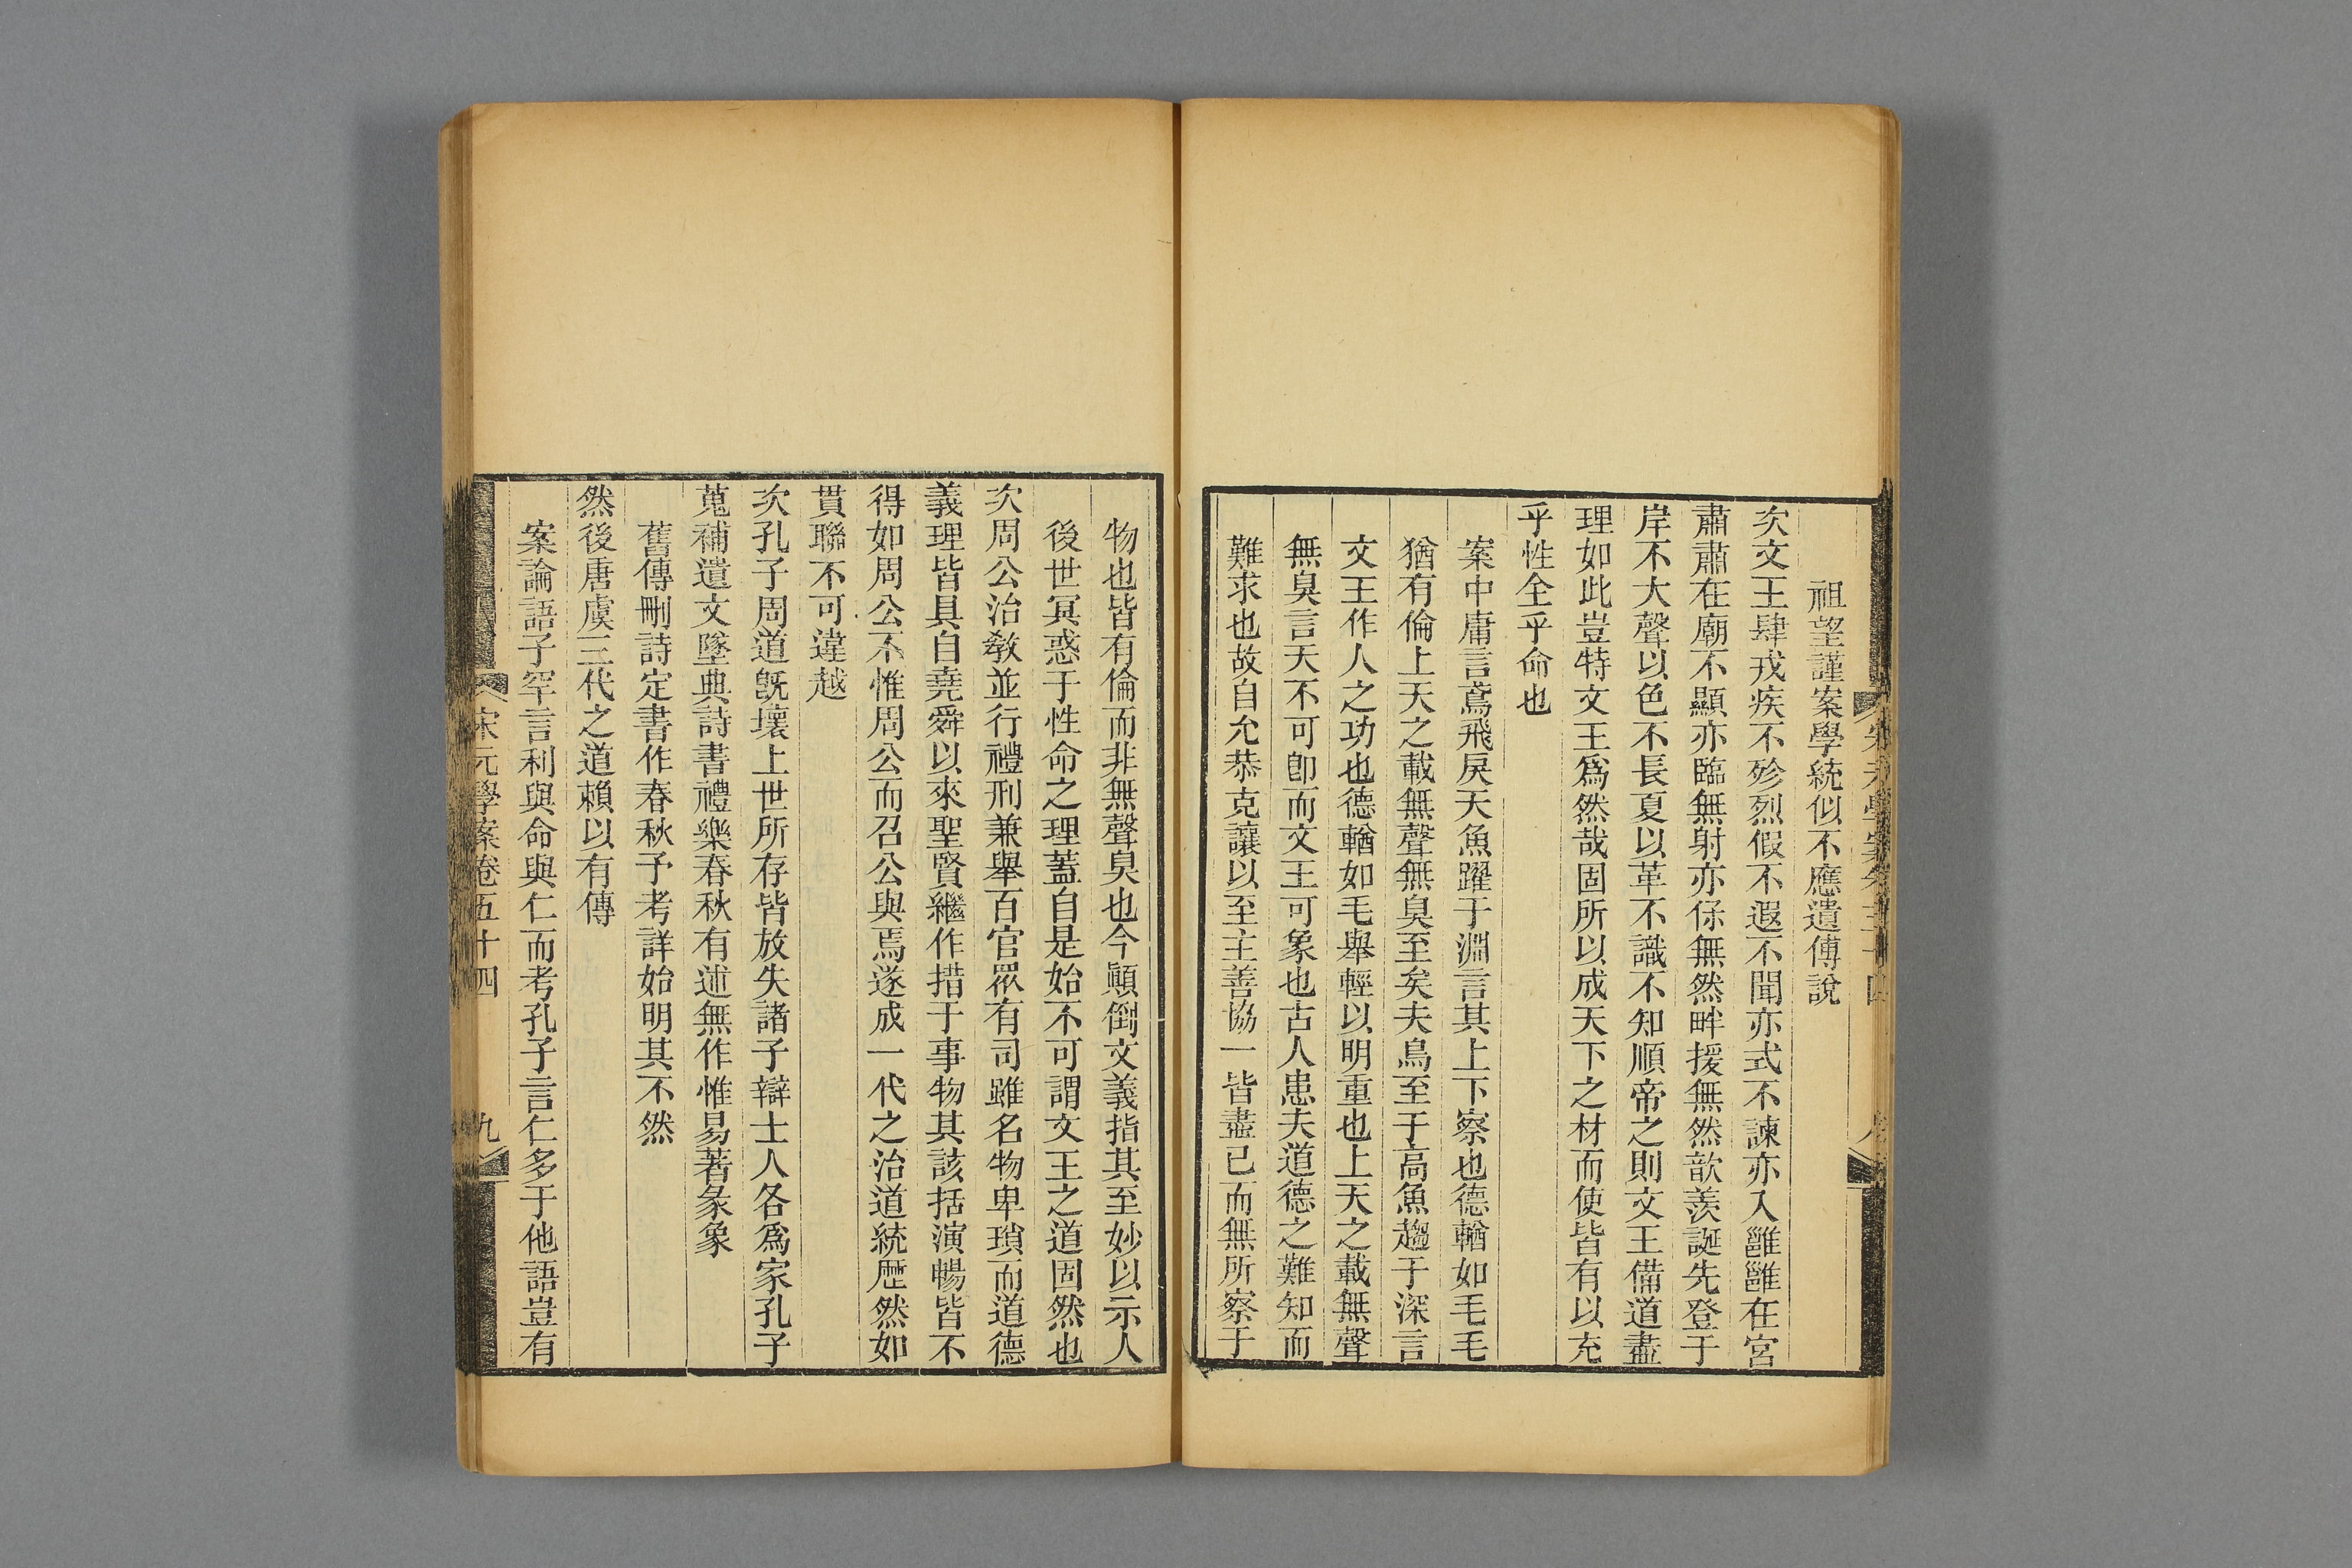 祖望謹案學統似不應遺傅說
次文王肆戎疾不殄烈假不遐不聞亦式不諫亦入雝雝在宮
肅肅在廟不顯亦臨無射亦保無然畔援無然歆羨誕先登于
岸不大聲以色不長夏以革不識不知順帝之則文王備道盡
理如此豈特文王爲然哉固所以成天下之材而使皆有以充
乎性全乎命也
案中庸言鳶飛戾天魚躍于淵言其上下察也德輶如毛毛
猶有倫上天之載無聲無臭至矣夫鳥至于高魚趨于深言
文王作人之功也德輶如毛舉輕以明重也上天之載無聲
無臭言天不可卽而文王可象也古人患夫道德之難知而
難求也故自允恭克讓以至主善協一皆盡己而無所察于
物也皆有倫而非無聲臭也今顚倒文義指其至妙以示人
後世冥惑于性命之理蓋自是始不可謂文王之道固然也
次周公治敎並行禮刑兼舉百官眾有司雖名物卑瑣而道德
義理皆具自堯舜以來聖賢繼作措于事物其該括演暢皆不
得如周公不惟周公而召公與焉遂成一代之治道統歷然如
貫聯不可違越
次孔子周道旣壞上世所存皆放失諸子辯士人各爲家孔子
蒐補遺文墜典詩書禮樂春秋有述無作惟易著彖象
舊傳刪詩定書作春秋予考詳始明其不然
然後唐虞三代之道賴以有傳
案論語子罕言利與命與仁而考孔子言仁多于他語豈有
宋元學案卷五十四
九